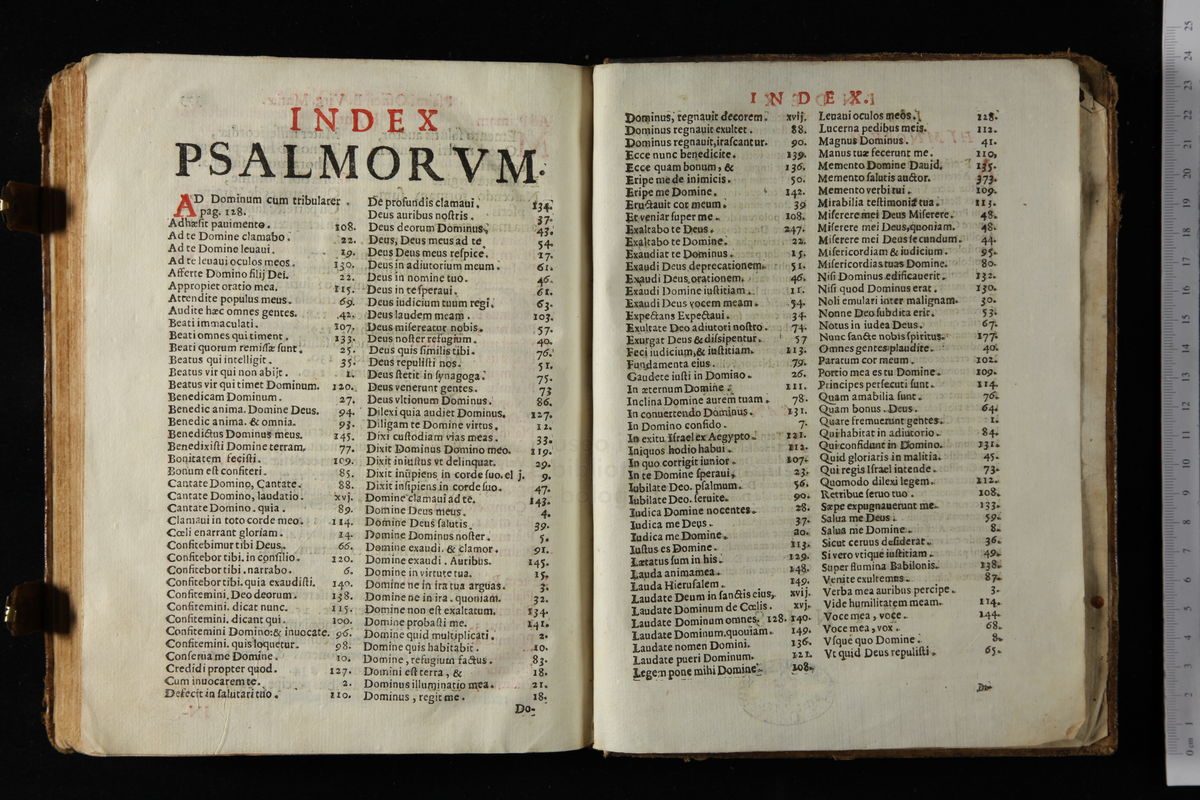 INDEX
PSALMORVM.
AD Dominum cum tribularer.
pag. 128.
Adhæsit pauimento. 108.
Ad te Domine clamabo. 22.
Ad te Domine leuaui. 19.
Ad te leuaui oculos meos. 130.
Afferte Domino filij Dei. 22.
Appropiet oratio mea. 115.
Attendite populus meus. 69.
Audite hæc omnes gentes. 42.
Beati immaculati. 107.
Beati omnes qui timent. 133.
Beati quorum remissæ sunt. 25.
Beatus qui intelligit. 35.
Beatus vir qui non abijt. 1.
Beatus vir qui timet Dominum. 120.
Benedicam Dominum. 27.
Benedic anima. Domine Deus. 94.
Benedic anima. & omnia. 93.
Benedictus Dominus meus. 145.
Benedixisti Domine terram. 77.
Bonitatem fecisti. 109.
Bonum est confiteri. 85.
Cantate Domino, Cantate. 88.
Cantate Domino, laudatio. xvj.
Cantate Domino. quia. 89.
Clamaui in toto corde meo. 114.
Cœli enarrant gloriam. 14.
Confitebimur tibi Deus. 66.
Confitebor tibi. in consilio. 120.
Confitebor tibi. narrabo. 6.
Confitebor tibi. quia exaudisti. 140.
Confitemini. Deo deorum. 138.
Confitemini. dicat nunc. 115.
Confitemini. dicant qui. 100.
Confitemini Domino: & inuocate. 96.
Confitemini. quis loquetur. 98.
Conserua me Domine. 10.
Credidi propter quod. 127.
Cum inuocarem te. 2.
Defecit in salutari tuo. 110.
De profundis clamaui. 134.
Deus auribus nostris. 37.
Deus deorum Dominus. 43.
Deus, Deus meus ad te 54.
Deus Deus meus respice. 17.
Deus in adiutorium meum. 61.
Deus in nomine tuo. 46.
Deus in te speraui. 61.
Deus iudicium tuum regi. 63.
Deus laudem meam. 103.
Deus misereatur nobis. 57.
Deus noster refugium. 40.
Deus quis similis tibi. 76.
Deus repulisti nos. 51.
Deus stetit in synagoga. 75.
Deus venerunt gentes. 73
Deus vltionum Dominus. 86.
Dilexi quia audiet Dominus. 127.
Diligam te Domine virtus. 12.
Dixi custodiam vias meas. 33.
Dixit Dominus Domino meo. 119.
Dixit iniustus vt delinquat. 29.
Dixit insipiens in corde suo. el j. 9.
Dixit insipiens in corde suo. 47.
Domine clamaui ad te. 143.
Domine Deus meus. 4.
Domine Deus salutis. 39.
Domine Dominus noster. 5.
Domine exaudi. & clamor. 91.
Domine exaudi. Auribus. 145.
Domine in virtute tua. 15.
Domine ne in ira tua arguas. 3.
Domine ne in ira. quoniam. 32.
Domine non est exaltatum. 134.
Domine probasti me. 141.
Domine quid multiplicati. 2.
Domine quis habitabit. 10.
Domine, refugium factus. 83.
Domini est terra, & 18.
Dominus illuminatio mea. 21.
Dominus, regit me. 18.
Do-
INDEX.
Dominus, regnauit decorem. xvij.
Dominus regnauit exultet. 88.
Dominus regnauit, irascantur. 90.
Ecce nunc benedicite. 139.
Ecce quam bonum, & 136.
Eripe me de inimicis. 50.
Eripe me Domine. 142.
Eructauit cor meum. 39
Et veniat super me. 108.
Exaltabo te Deus. 247.
Exaltabo te Domine. 22.
Exaudiat te Dominus. 15.
Exaudi Deus deprecationem. 51.
Exaudi Deus orationem. 46.
Exaudi Domine iustitiam. 11.
Exaudi Deus vocem meam. 54.
Expectans Expectaui. 34.
Exultate Deo adiutori nostro. 74.
Exurgat Deus & dissipentur. 57
Feci iudicium, & iustitiam. 113.
Fundamenta eius. 79.
Gaudete iusti in Domino. 26.
In æternum Domine. 111.
Inclina Domine aurem tuam. 78.
In conuertendo Dominus. 131.
In Domino confido. 7.
In exitu Israel ex Aegypto. 121.
Iniquos hodio habui. 112.
In quo corrigit iunior. 107.
In te Domine speraui. 23.
Iubilate Deo. psalmum. 56.
Iubilate Deo. seruite. 90.
Iudica Domine nocentes. 28.
Iudica me Deus. 37.
Iudica me Domine. 20.
Iustus es Domine. 113.
Lætatus sum in his. 129.
Lauda anima mea. 148.
Lauda Hierusalem. 149.
Laudate Deum in sanctis eius. xvij.
Laudate Dominum de Cœlis. xvj.
Laudate Dominum omnes. 128. 140.
Laudate Dominum. quoniam. 149.
Laudate nomen Domini. 136.
Laudate pueri Dominum. 121.
Legem pone mihi Domine. 108.
Leuaui oculos meos. 128.
Lucerna pedibus meis. 112.
Magnus Dominus. 41.
Manus tuæ fecerunt me. 110,
Memento Domine Dauid. 135.
Memento salutis auctor. 373.
Memento verbi tui. 109.
Mirabilia testimonia tua. 113.
Miserere mei Deus Miserere. 48.
Miserere mei Deus, quoniam. 48.
Miserere mei Deus secundum. 44.
Misericordiam & iudicium. 95.
Misericordias tuas Domine. 80.
Nisi Dominus edificauerit. 132.
Nisi quod Dominus erat. 130.
Noli emulari inter malignam. 30.
Nonne Deo subdita erit. 53.
Notus in iudea Deus. 67.
Nunc sancte nobis spiritus. 177.
Omnes gentes plaudite. 40.
Paratum cor meum. 102.
Portio mea es tu Domine. 109.
Principes persecuti sunt. 114.
Quam amabilia sunt. 76.
Quam bonus Deus. 64.
Quare fremuerunt gentes. 1.
Qui habitat in adiutorio. 84.
Qui confidunt in Domino. 131.
Quid gloriatis in malitia. 45.
Qui regis Israel intende. 73.
Quomodo dilexi legem. 112.
Retribue seruo tuo. 108.
Sæpe expugnauerunt me. 133.
Salua me Deus. 59.
Salua me Domine. 8.
Sicut ceruus desiderat. 36.
Si vero vtique iustitiam. 49.
Super flumina Babilonis. 138.
Venite exultemus. 87.
Verba mea auribus percipe. 3.
Vide humilitatem meam. 114.
Voce mea, voce. 144.
Voce mea, vox. 68.
Vsque quo Domine. 8.
Vt quid Deus repulisti. 65.